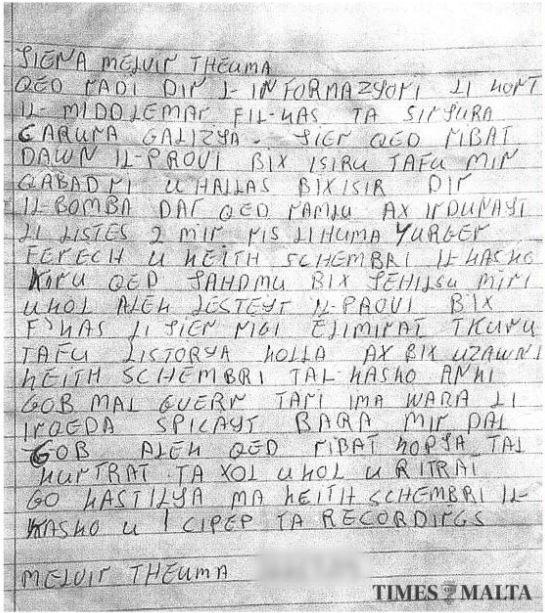 JIENA MELVIN THEUMA
QED NADI DIN L-INFORMAZJONI LI KONT
IL-MIDDLEMAN FIL-KAS TA SINJURA
GARUNA GALIZJA. JIEN QED NIBAT
DAWN IL-PROVI BIX ISIRU TAFU MIN
QABADNI U HALLAS BIX ISIR DIN
IL-BOMBA DAN QED NAMLU AX INDUNAJT
LI LISTES 2 MIN NIS LI HUMA YURGEN
FENECH U KEITH SCHEMBRI IL-KASKO
KONU QED JAHDMU BIX JEHILSU MINI
U KOL ALEK JESTEJT IL-PROVI BIX
F'KAS LI JIEN NIGI ELIMINAT TKUNU
TAFU LISTORJA KOLLA AX BIX UZAWNI
KEITH SCHEMBRI TAL-KASKO ANKI
GOB MAL GVERN TANI IMA WARA LI
INQEDA SPICAJT BARA MIN DAL
GOB ALEK QED NIBAT KOPJA TAL
KUNTRAT TA XOL UKOL U RITRAT
GO KASTILJA MA KEITH SCHEMBRI IL-
KASKO U 1 CIPEP TA RECORDINGS
MELVIN THEUMA
TIMES OF MALTA